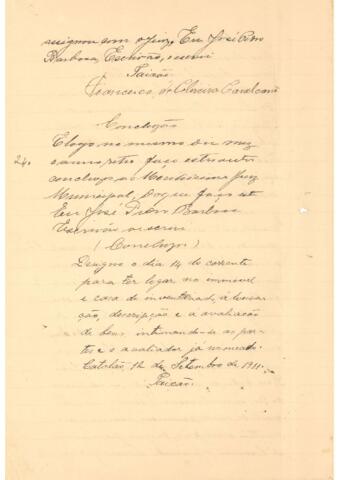 assignou com o Juiz, Eu José Pedro
Barbosa, Escrivão, escrevi
Paixão
Francisco de Oliveira Cavalcante
Conclusão
E logo no mesmo dia mez
24.
e anno retro faço estes autos
conclusos ao Meretissimo Juiz
Municipal, do que faço est
Eu José Pedro Barbosa
Escrivão o escrevi
(Conclusos)
Designo o dia 14 do corrente
para ter logar no immovel
e casa do inventariado, a louva-
ção, descripção e a avaliação
de bens intimando-se as par-
tes e o avaliador já nomeado.
Catalão, 12 de Setembro de 1911.
Paixão.